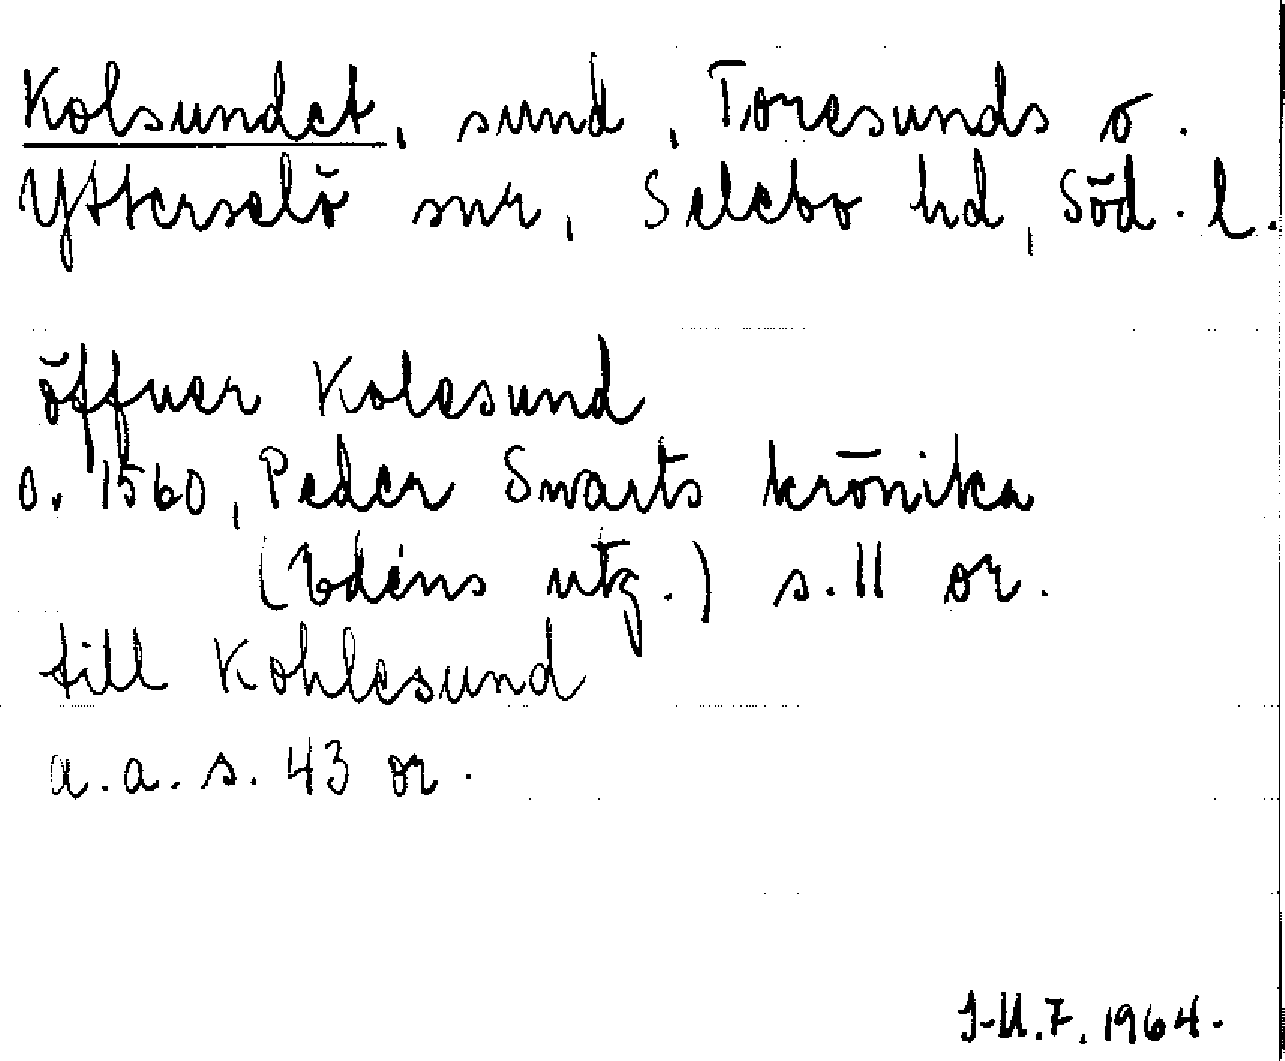 Kolsundet, sund, Toresunds o.
Ytterselö snr, Selebo hd, Söd. l.
öffuer Kolesund
o. 1560, Peder Swarts krönika
(Edéns utg.) s. 11 or.
till Kohlesund
a. a. s. 43 or.
J-U.F. 1964.